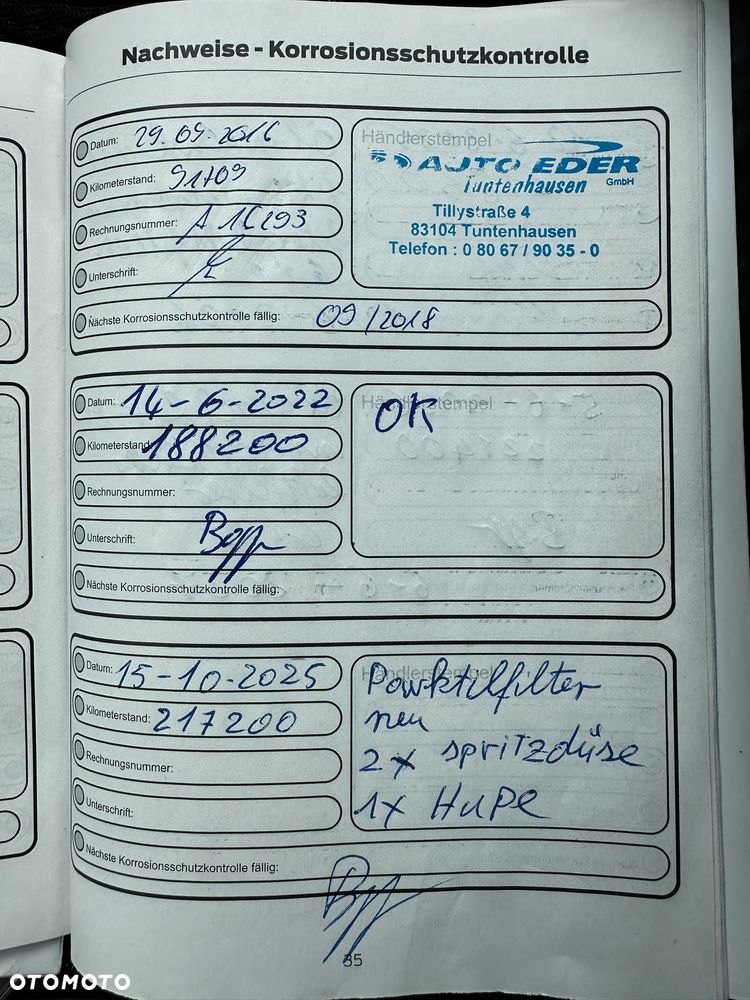 Nachweise - Korrosionsschutzkontrolle
Datum: 29.09.2016
Kilometerstand: 91709
Rechnungsnummer: A 16293
Unterschrift:
Händlerstempel
AUTO EDER
Tuntenhausen GmbH
Tillystraße 4
83104 Tuntenhausen
Telefon : 0 80 67 / 90 35 - 0
Nächste Korrosionsschutzkontrolle fällig: 09/2018
Datum: 14-6-2022
Kilometerstand: 188200
Rechnungsnummer:
Unterschrift:
Händlerstempel
OK
Nächste Korrosionsschutzkontrolle fällig:
Datum: 15-10-2025
Kilometerstand: 217200
Rechnungsnummer:
Unterschrift:
Händlerstempel
Powktilfilter
neu
2x spritzdüse
1x Hupe
Nächste Korrosionsschutzkontrolle fällig:
35
OTOMOTO